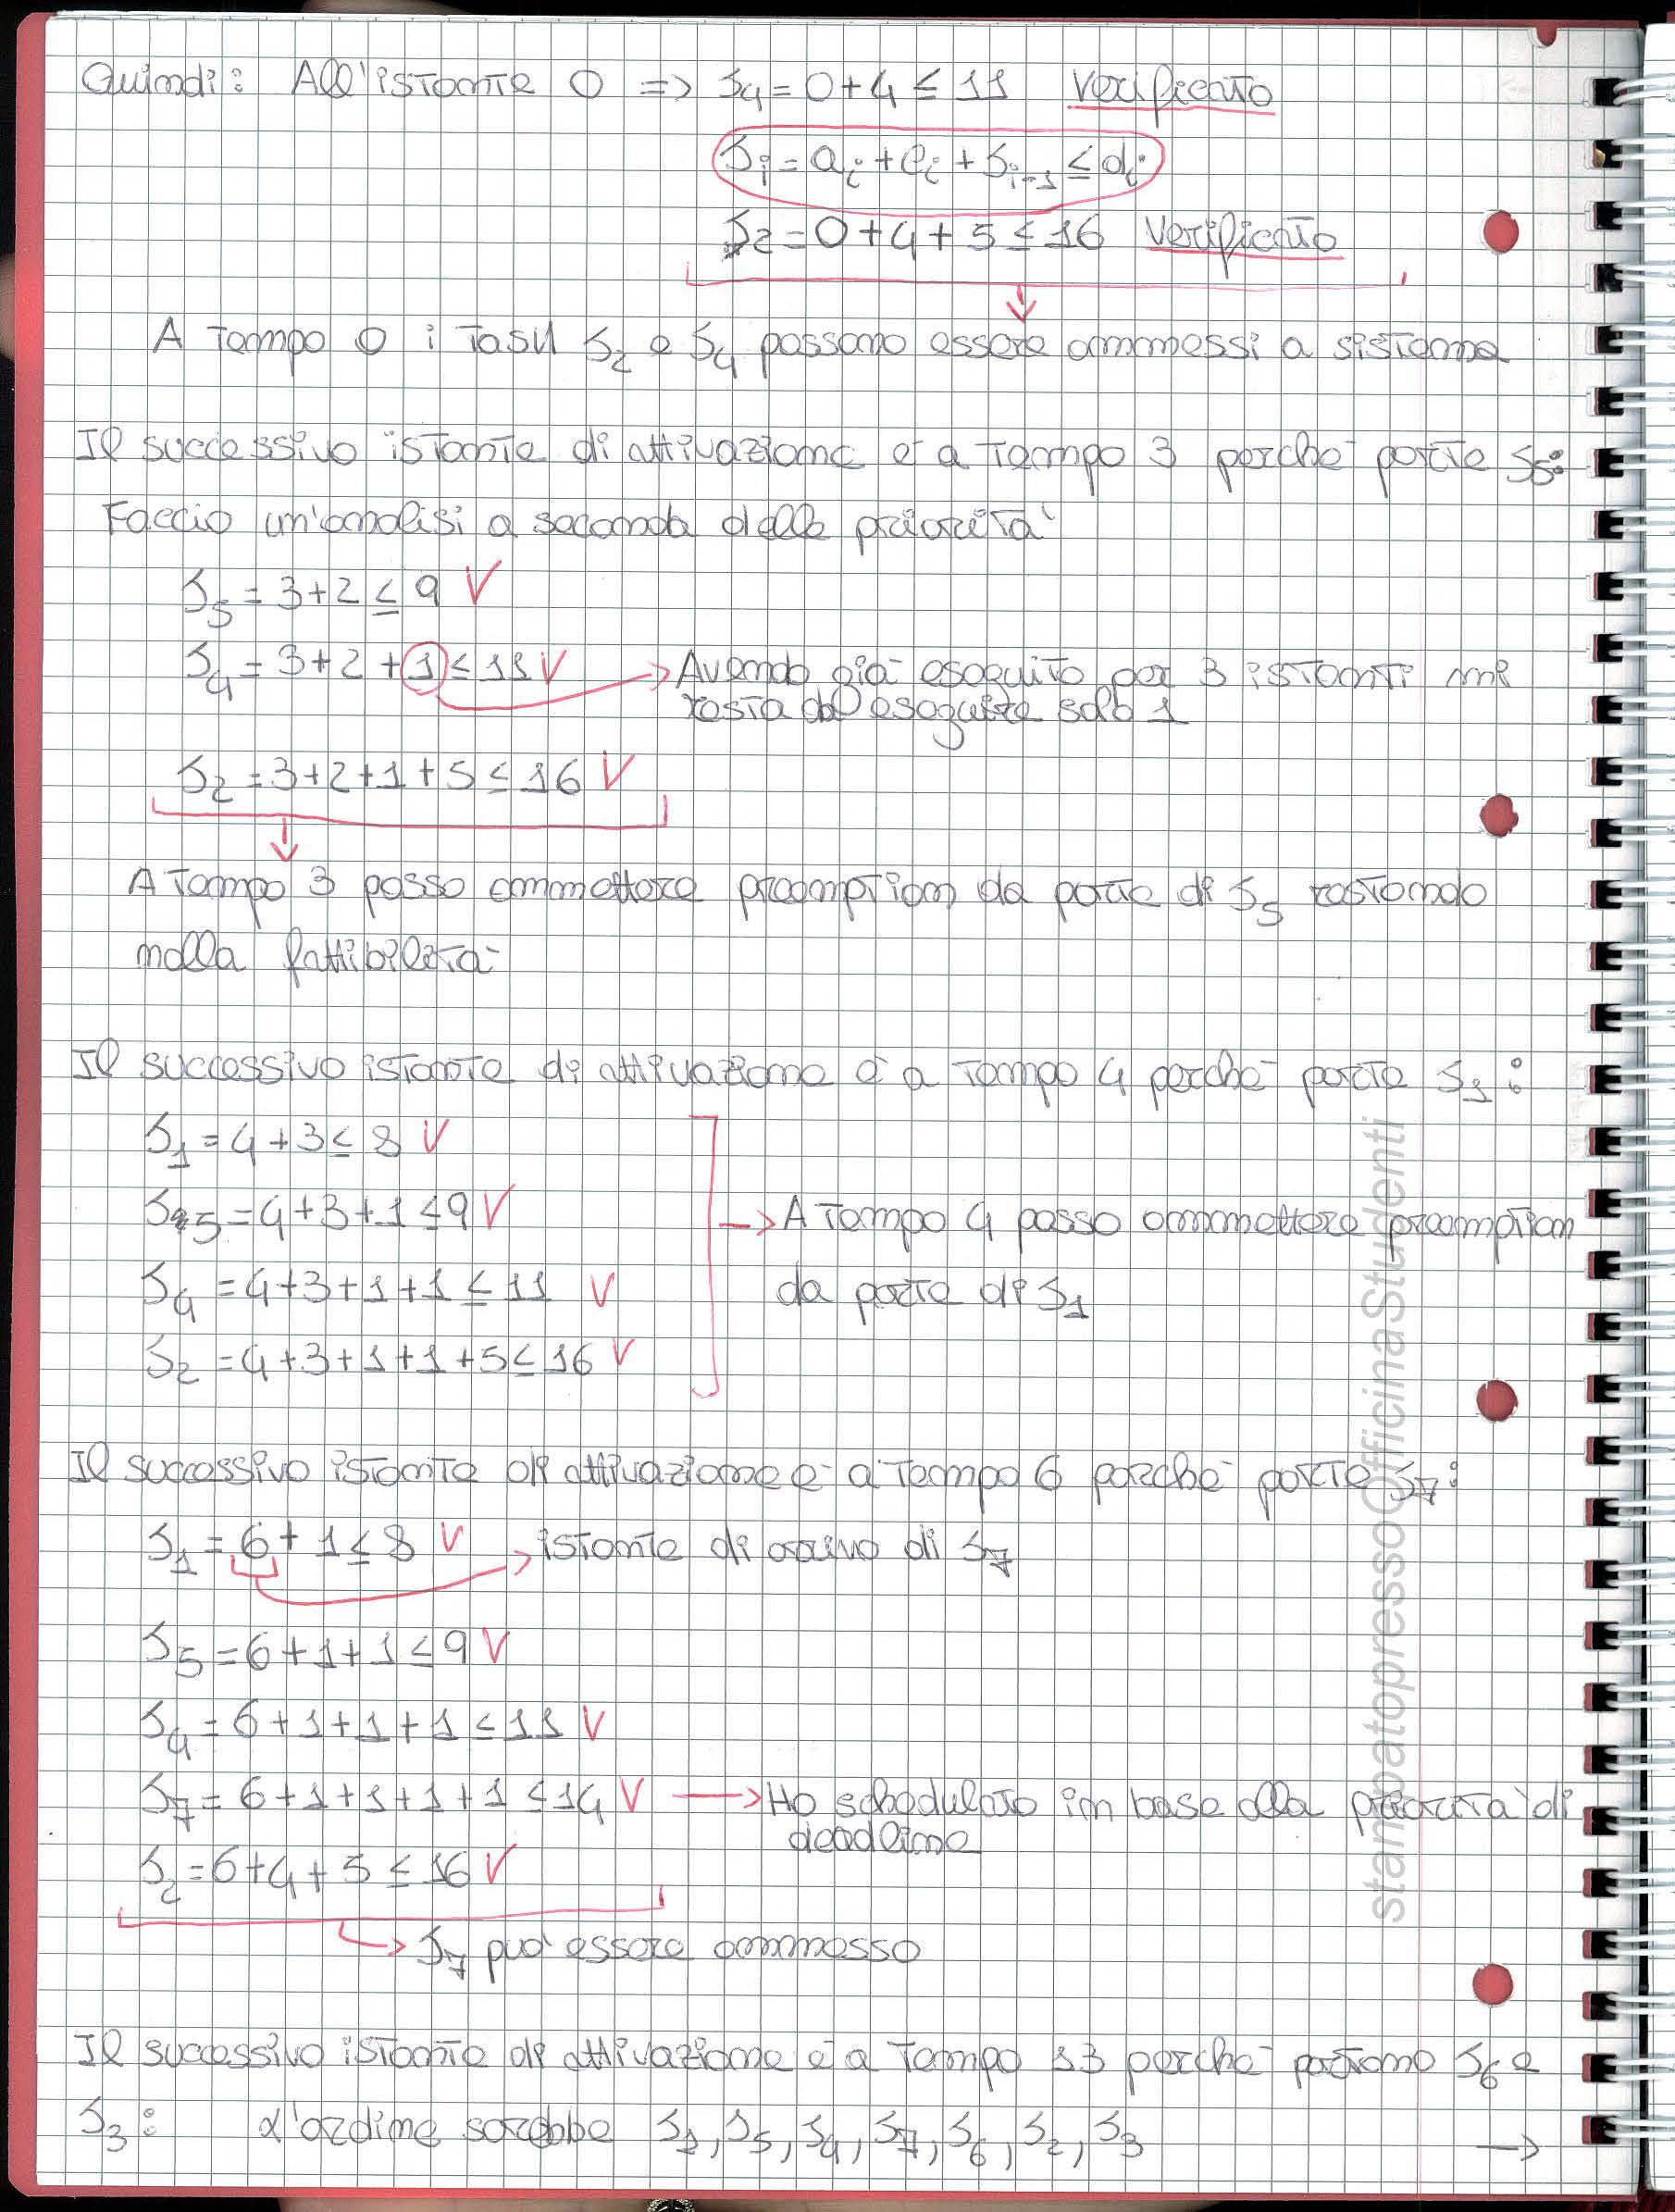 Quindi: All'istante 0 => S4 = 0+4 ≤ 11 Verificato
Si = ai + ei + Si-1 ≤ di
S2 = 0+4+5 ≤ 16 Verificato
A tempo 0 i task S2 e S4 possono essere ammessi a sistema
Il successivo istante di attivazione è a tempo 3 perchè parte S5:
Faccio un'analisi a seconda delle priorità
S5 = 3+2 ≤ 9 V
S4 = 3+2+1 ≤ 11 V -> Avendo già eseguito per 3 istanti mi
resta da eseguire solo 1
S2 = 3+2+1+5 ≤ 16 V
A tempo 3 posso ammettere preemption da parte di S5 restando
nella fattibilità
Il successivo istante di attivazione è a tempo 4 perchè parte S1:
S1 = 4+3 ≤ 8 V
S5 = 4+3+1 ≤ 9 V -> A tempo 4 posso ammettere preemption
S4 = 4+3+1+1 ≤ 11 V da parte di S1
S2 = 4+3+1+1+5 ≤ 16 V
Il successivo istante di attivazione è a tempo 6 perchè parte S7:
S1 = 6+1 ≤ 8 V -> istante di arrivo di S7
S5 = 6+1+1 ≤ 9 V
S4 = 6+1+1+1 ≤ 11 V
S7 = 6+1+1+1+1 ≤ 14 V -> Ho schedulato in base alla priorità di
deadline
S2 = 6+4+5 ≤ 16 V
-> S7 può essere ammesso
Il successivo istante di attivazione è a tempo 13 perchè partono S6 e
S3: L'ordine sarebbe S1, S5, S4, S7, S6, S2, S3 ->
stampatopressoOfficinaStudenti